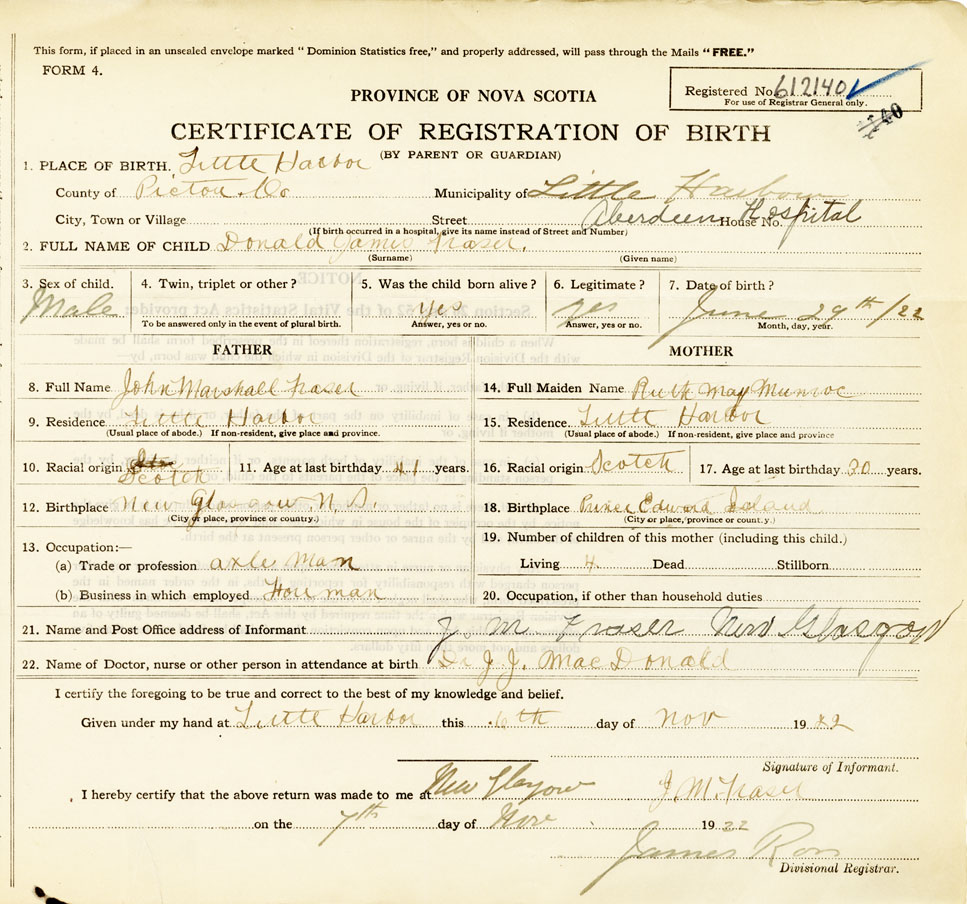 This form, if placed in an unsealed envelope marked "Dominion Statistics free," and properly addressed, will pass through the Mails "FREE."
FORM 4.
Registered No. 612140
For use of Registrar General only.
PROVINCE OF NOVA SCOTIA
CERTIFICATE OF REGISTRATION OF BIRTH
(BY PARENT OR GUARDIAN)
1. PLACE OF BIRTH. Little Harbor
County of Pictou Co Municipality of Little Harbour
City, Town or Village Street Aberdeen Hospital House No.
(If birth occurred in a hospital, give its name instead of Street and Number)
2. FULL NAME OF CHILD Donald James Fraser.
(Surname) (Given name)
3. Sex of child. 4. Twin, triplet or other? 5. Was the child born alive? 6. Legitimate? 7. Date of birth?
Male yes yes June 29th/22
To be answered only in the event of plural birth. Answer, yes or no. Answer, yes or no. Month, day, year.
FATHER MOTHER
8. Full Name John Marshall Fraser 14. Full Maiden Name Ruth May Munroe
9. Residence Little Harbor 15. Residence. Little Harbor
(Usual place of abode.) If non-resident, give place and province. (Usual place of abode.) If non-resident, give place and province
10. Racial origin Scotch 11. Age at last birthday 41 years. 16. Racial origin Scotch 17. Age at last birthday 30 years.
12. Birthplace New Glasgow N.S. 18. Birthplace Prince Edward Island
(City or place, province or country.) (City or place, province or count.y.)
13. Occupation:— 19. Number of children of this mother (including this child.)
(a) Trade or profession axle man Living 4 Dead Stillborn
(b) Business in which employed man 20. Occupation, if other than household duties
21. Name and Post Office address of Informant J. M. Fraser New Glasgow
22. Name of Doctor, nurse or other person in attendance at birth Dr J. J. MacDonald
I certify the foregoing to be true and correct to the best of my knowledge and belief.
Given under my hand at Little Harbor this 6th day of Nov 1922
Signature of Informant.
I hereby certify that the above return was made to me at New Glasgow J. M. Fraser
on the 7th day of Nov 1922
James Ross
Divisional Registrar.